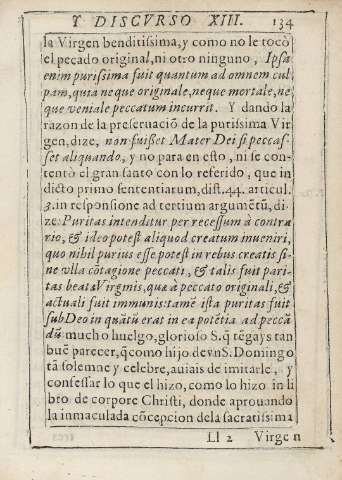 Y DISCVRSO XIII. 134
la Virgen benditissima, y como no le tocò
el pecado original, ni otro ninguno, Ipsa
enim purissima fuit quantum ad omnem cul
pam, quia neque originale, neque mortale, ne
que veniale peccatum incurrit. Y dando la
razon de la preseruaciō de la purissima Vir
gen, dize, non fuisset Mater Dei si peccas-
set aliquando, y no para en esto, ni se con-
tentò el gran santo con lo referido, que in
dicto primo sententiarum, dist. 44. articul.
3. in responsione ad tertium argumētū, di
ze: Puritas intenditur per recessum à contra
rio, & ideo potest aliquod creatum inueniri,
quo nihil purius esse potest in rebus creatis si-
ne vlla cōtagione peccati, & talis fuit puri
tas beatæ Virginis, quæ à peccato originali, &
actuali fuit immunis: tamē ista puritas fuit
sub Deo in quātū erat in ea potētia ad peccā
dū: mucho huelgo, glorioso S. q̄ tēgays tan
buē parecer, q̄ como hijo de vn S. Domingo
tā solemne y celebre, auiais de imitarle, y
confessar lo que el hizo, como lo hizo in li
bro de corpore Christi, donde aprouando
la inmaculada cōcepcion de la sacratissima
Ll 2 Virgen